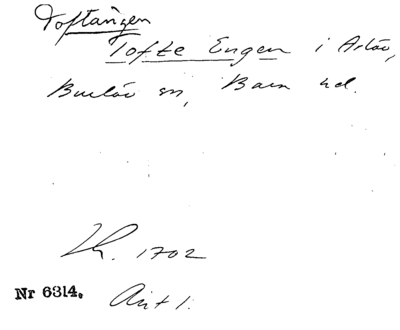 Toftängen
Tofte Engen i Arlöv,
Burlöv sn, Bara hd.
Lh. 1702
Nr 6314. Akt 1.